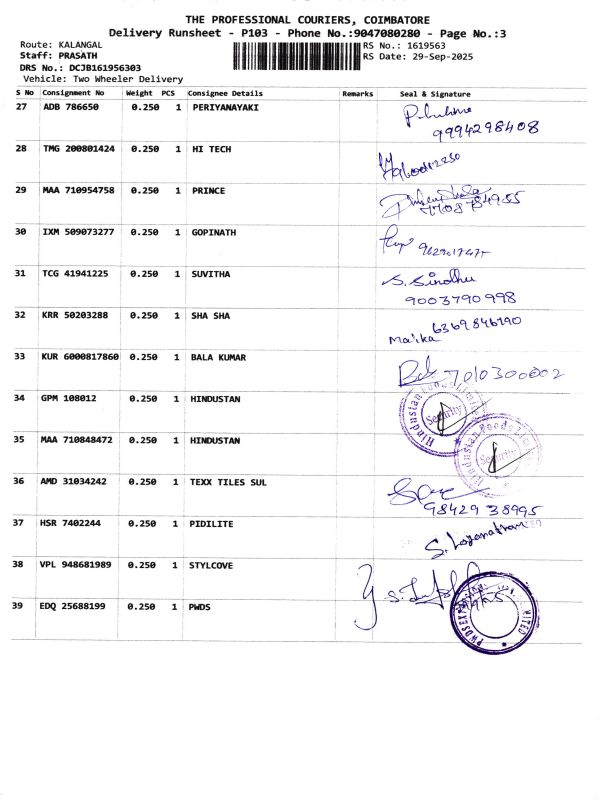 THE PROFESSIONAL COURIERS, COIMBATORE
Delivery Runsheet - P103 - Phone No.:9047080280 - Page No.:3
Route: KALANGAL
RS No.: 1619563
Staff: PRASATH
RS Date: 29-Sep-2025
DRS No.: DCJB161956303
Vehicle: Two Wheeler Delivery
S No Consignment No Weight PCS Consignee Details Remarks Seal & Signature
27 ADB 786650 0.250 1 PERIYANAYAKI
9994298408
28 TMG 200801424 0.250 1 HI TECH
29 MAA 710954758 0.250 1 PRINCE
7708784955
30 IXM 509073277 0.250 1 GOPINATH
31 TCG 41941225 0.250 1 SUVITHA
S. Sindhu
9003790998
32 KRR 50203288 0.250 1 SHA SHA
Malika
33 KUR 6000817860 0.250 1 BALA KUMAR
7010300002
34 GPM 108012 0.250 1 HINDUSTAN
Hindustan Foods Limited
Security
35 MAA 710848472 0.250 1 HINDUSTAN
Hindustan Foods Limited
Security
36 AMD 31034242 0.250 1 TEXX TILES SUL
98429 38995
37 HSR 7402244 0.250 1 PIDILITE
38 VPL 948681989 0.250 1 STYLCOVE
39 EDQ 25688199 0.250 1 PWDS